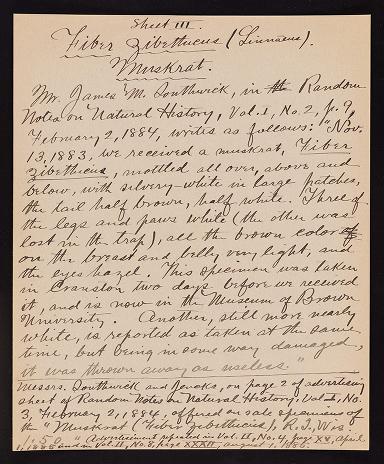 Sheet III.
Fiber zibethicus (Linnaeus).
Muskrat.
Mr. James M. Southwick, in Random
Notes on Natural History, Vol. I, No. 2, p. 9,
February 2, 1884, writes as follows: "Nov.
13, 1883, we received a muskrat, Fiber
zibethicus, mottled all over, above and
below, with silvery-white in large patches,
the tail half brown, half white. Three of
the legs and paws white (the other was
lost in the trap), all the brown color
on the breast and belly very light, and
the eyes hazel. This specimen was taken
in Cranston two days before we received
it, and is now in the Museum of Brown
University. Another, still more nearly
white, is reported as taken at the same
time, but being in some way damaged,
it was thrown away as useless."
Messrs. Southwick and Jencks, on page 2 of advertising
sheet of Random Notes on Natural History, Vol. I, No.
3, February 2, 1884, offered on sale specimens of
the "Muskrat (Fiber zibethicus), R. I., Wis.
1.50." Advertisement repeated in Vol. II, No. 4, page XV, April
1, 1885 and in Vol. II, No. 8, page XXXII, August 1, 1885.